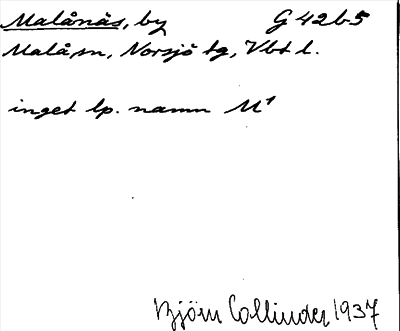 Malånäs, by G 42b5
Malå sn, Norsjö tg, Vbt l.
inget lp. namn M¹
Björn Collinder 1937